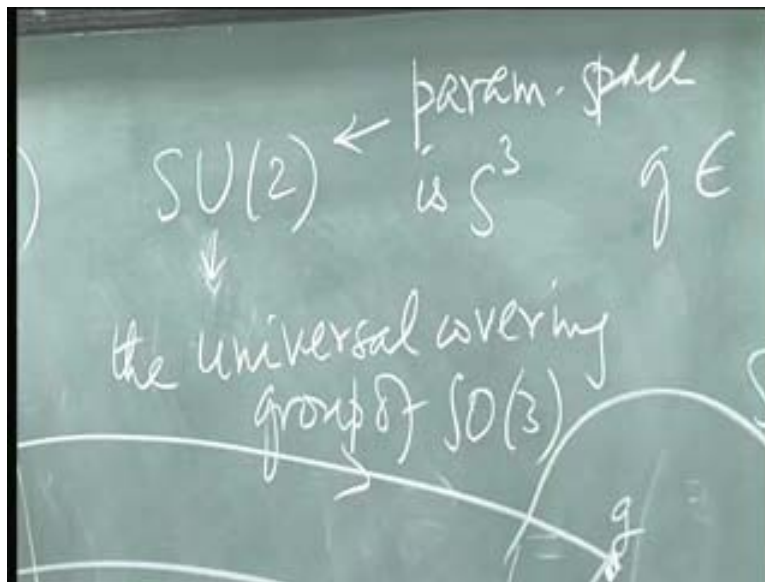 param. space
SU(2) ← is S³ g ∈
↓
the universal covering
group of SO(3)
g